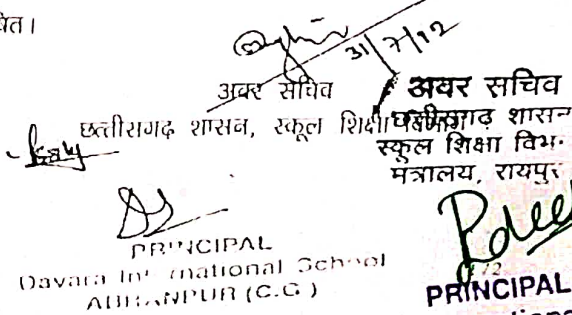 31/7/12
अवर सचिव
छत्तीसगढ़ शासन, स्कूल शिक्षा
अवर सचिव
छत्तीसगढ़ शासन
स्कूल शिक्षा
मंत्रालय, रायपुर
PRINCIPAL
Davara International School
ABHANPUR (C.G.)
PRINCIPAL